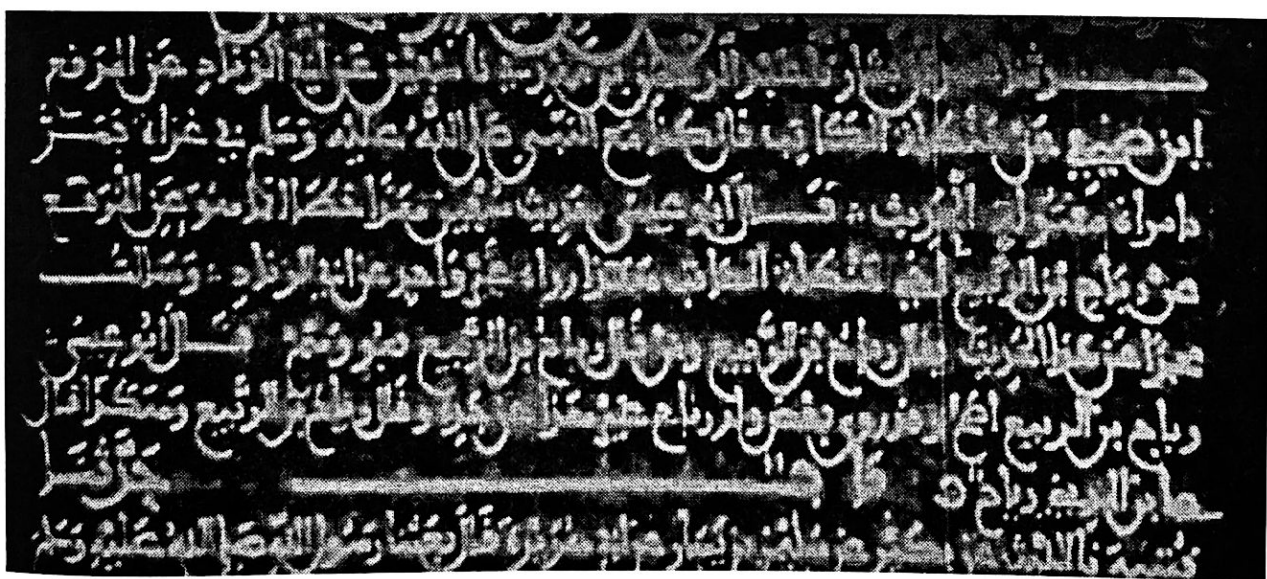 حدثنا بشار نا عبد الرحمن بن مهدي نا سفين عن ابي الزناد عن المرقع
ابن صيفي عن حنظلة الكاتب قال كنا مع النبي صلى الله عليه وسلم في غزاة فمر
بامراة مقتولة الحديث قال ابو عيسى حديث سفين هذا خطا انما هو عن المرقع
عن رياح بن الربيع اخي حنظلة الكاتب هكذا رواه غير واحد عن ابي الزناد وسالت
محمدا عن هذا الحديث فقال رياح بن الربيع ومن قال رياح بن الربيع فهو وهم قال ابو عيسى
رياح بن الربيع اصح وقد روى بعض ولد رياح هذا عن جده وقال رياح بن الربيع وهكذا قال
علي ابن المديني رياح حدثنا
قتيبة نا الليث عن بكير عن سليمن بن يسار عن ابي هريرة قال بعثنا رسول الله صلى الله عليه وسلم